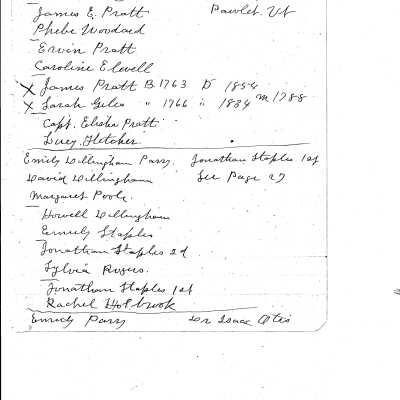 James E. Pratt Pawlet. Vt
Phebe Woodard
Ervin Pratt
Caroline Elwell
X James Pratt B 1763 D 1854
X Sarah Giles " 1766 " 1834 m 1788
Capt. Elisha Pratt
Lucy Fletcher
Emily Dillingham Parry. Jonathan Staples 1st
David Dillingham See Page 27
Margaret Poole.
Howell Dillingham
Emily Staples
Jonathan Staples 2d
Sylvia Rogers.
Jonathan Staples 1st
Rachel Holbrook
Emily Parry Dr Isaac Otis